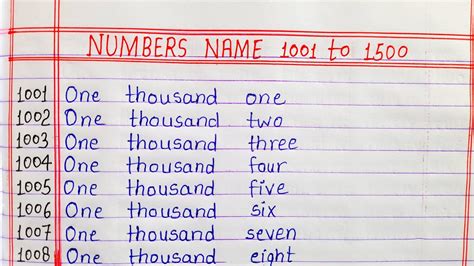 NUMBERS NAME 1001 to 1500
1001 One thousand one
1002 One thousand two
1003 One thousand three
1004 One thousand four
1005 One thousand five
1006 One thousand six
1007 One thousand seven
1008 One thousand eight